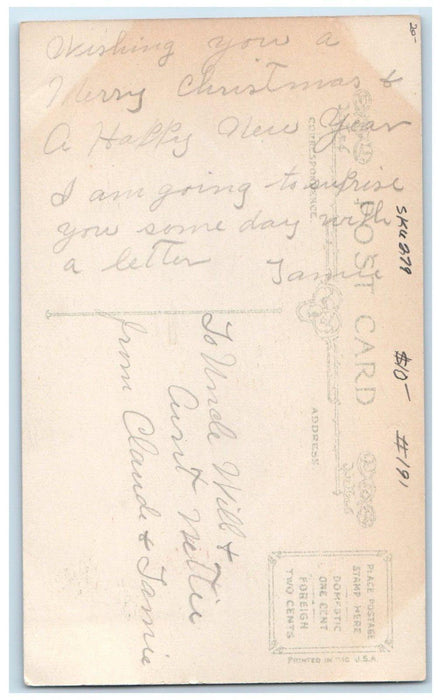 Wishing you a
Merry Christmas &
A Happy New Year
I am going to suprise
you some day with
a letter Jamie
To Uncle Will &
Aunt Nettie
from Claude & Jamie
POST CARD
CORRESPONDENCE
ADDRESS
PLACE POSTAGE
STAMP HERE
DOMESTIC
ONE CENT
FOREIGN
TWO CENTS
PRINTED IN THE U.S.A.
20-
SKU279
$10-
#191